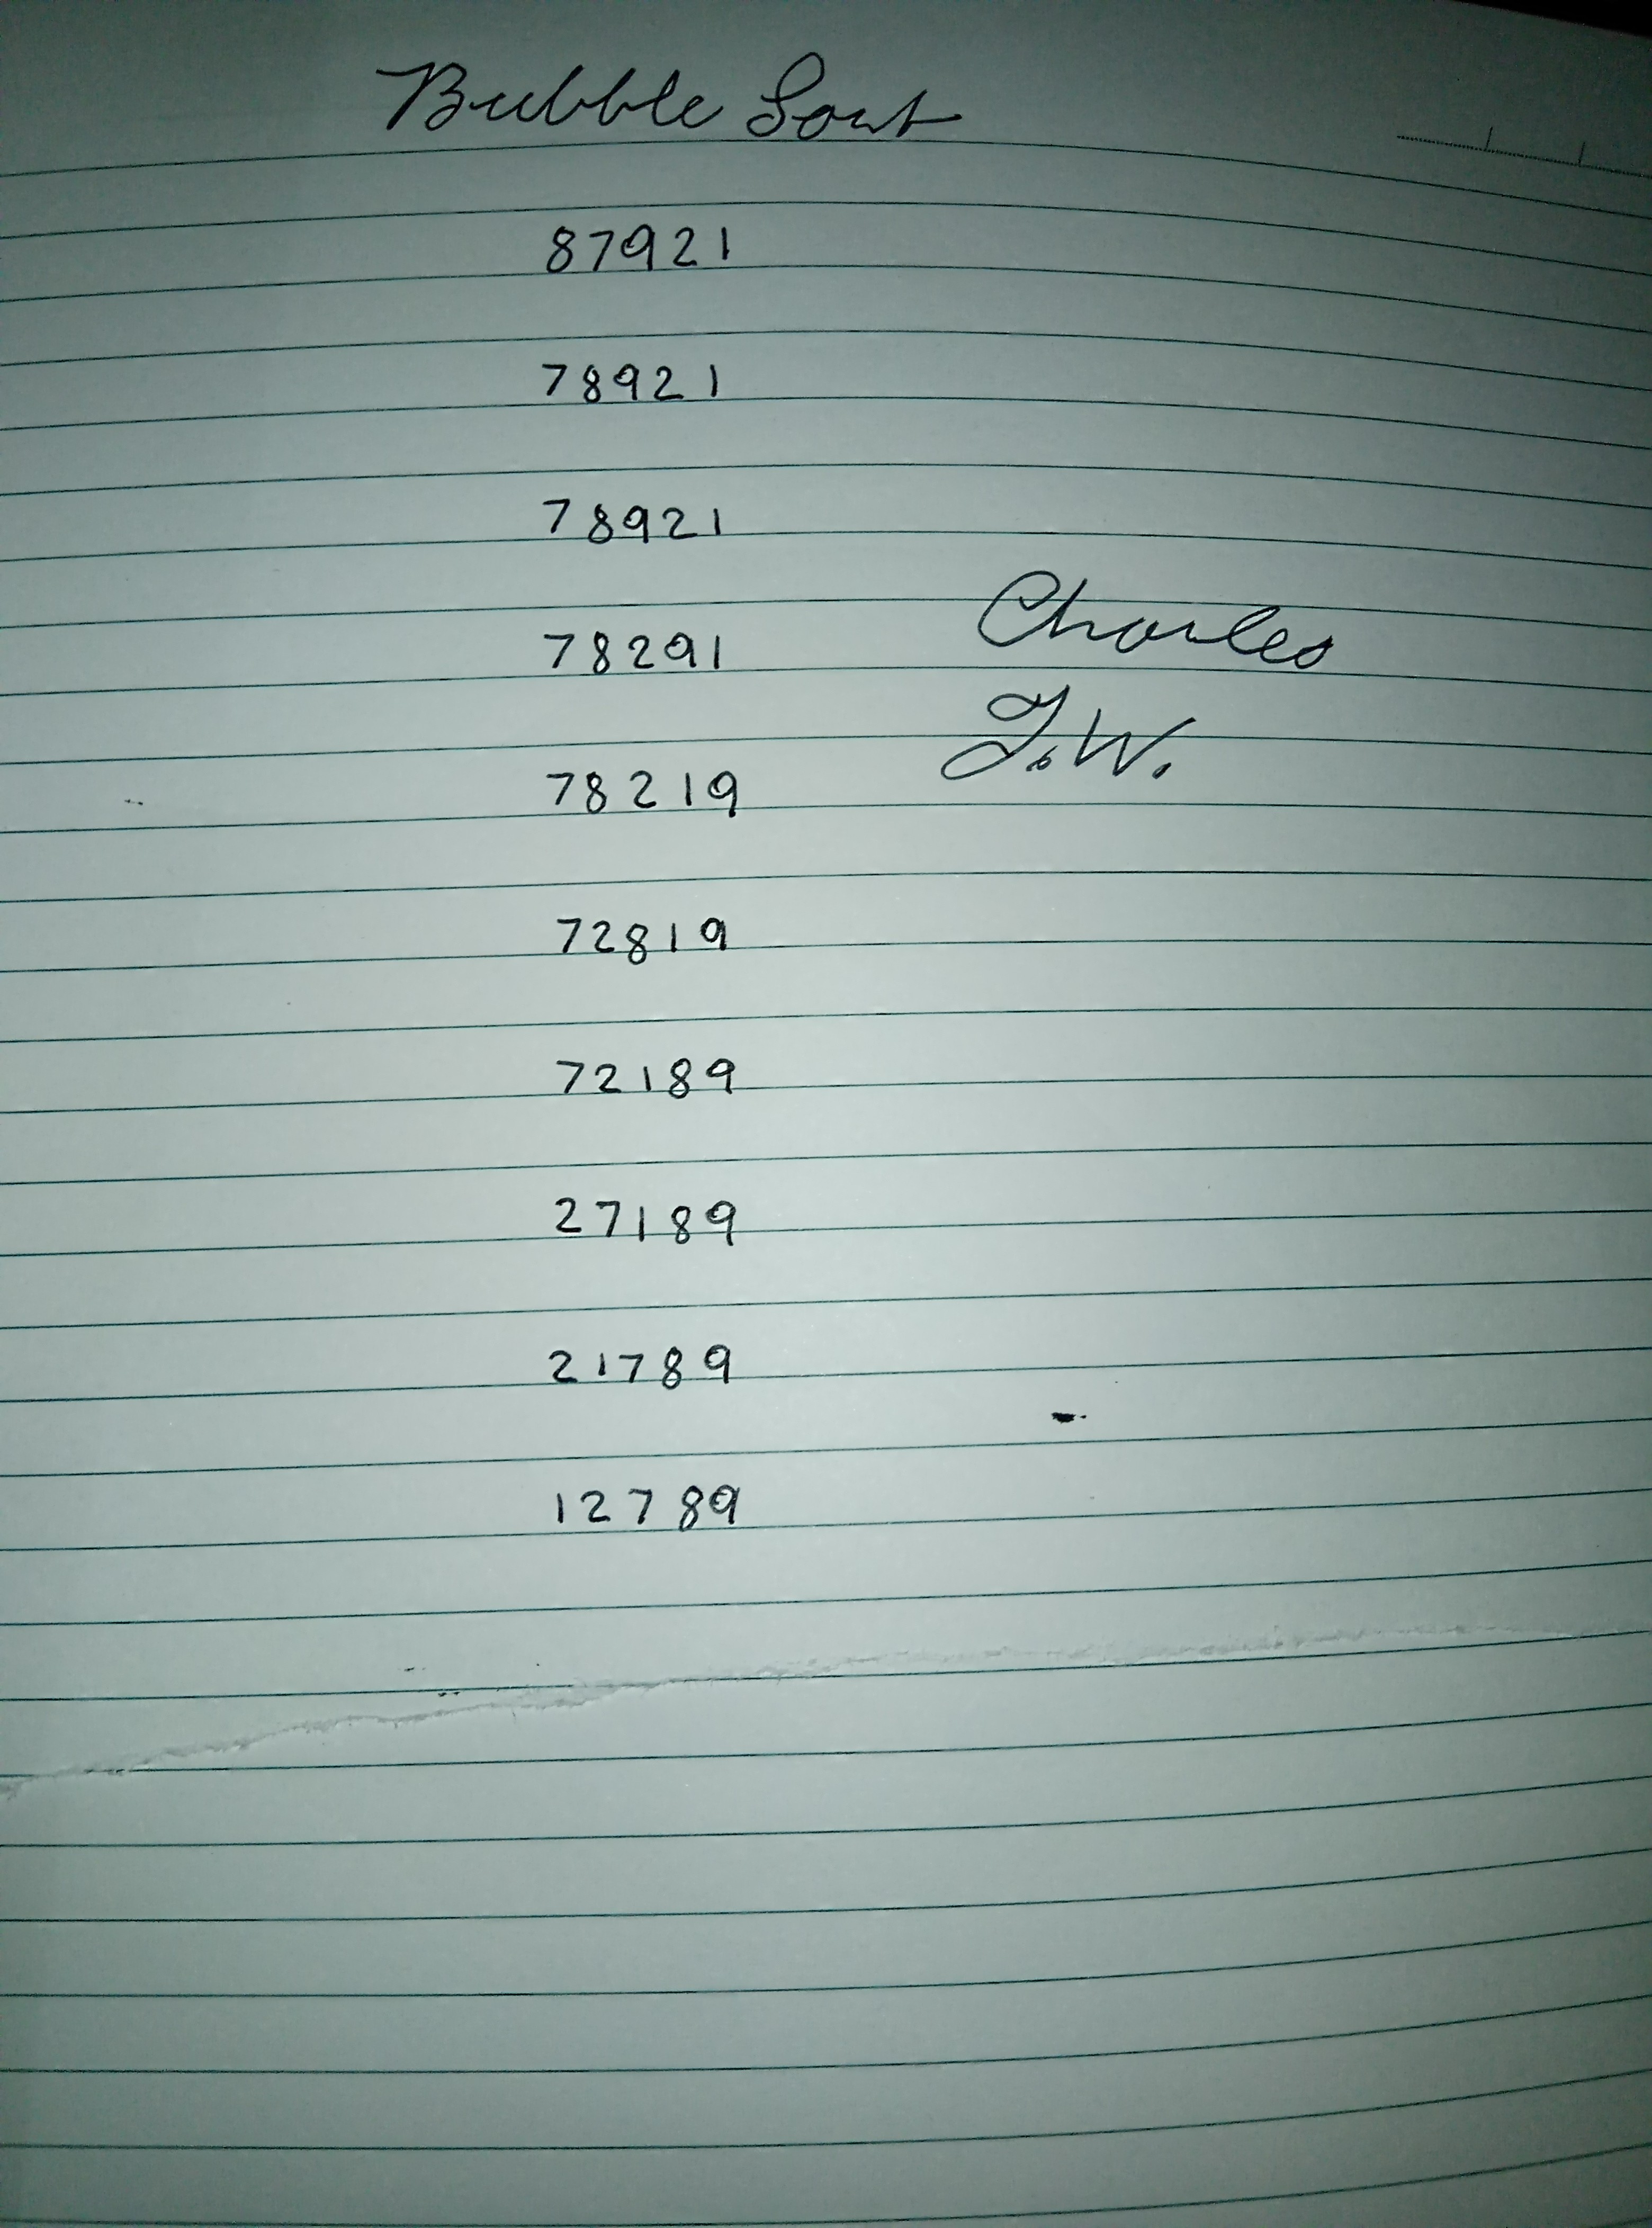 Bubble Sort
87921
78921
78921
78291
78219
72819
72189
27189
21789
12789
Charles
J.W.